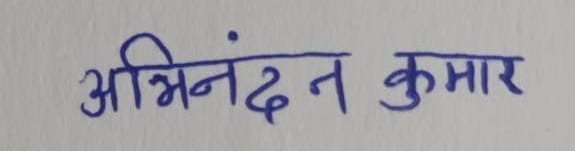 अभिनंदन कुमार